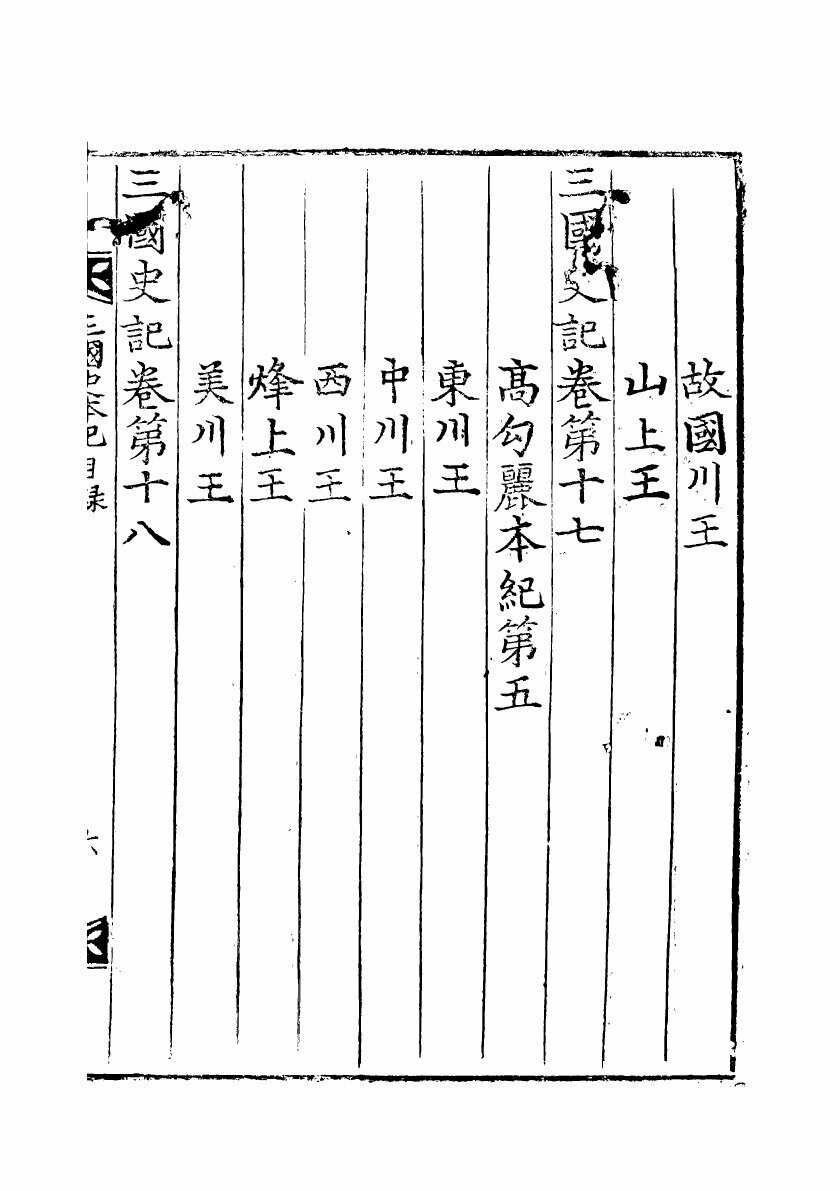 故國川王
山上王
三國史記卷第十七
高勾麗本紀第五
東川王
中川王
西川王
烽上王
美川王
三國史記卷第十八
三國史本紀目録
六